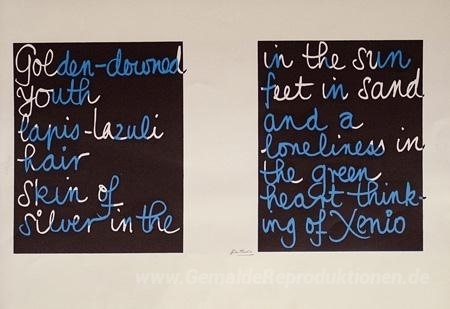 Golden-downed
youth
lapis-lazuli
hair
skin of
silver in the
in the sun
feet in sand
and a
loneliness in
the green
heart think-
ing of Xenio
www.GemaldeReproduktionen.de